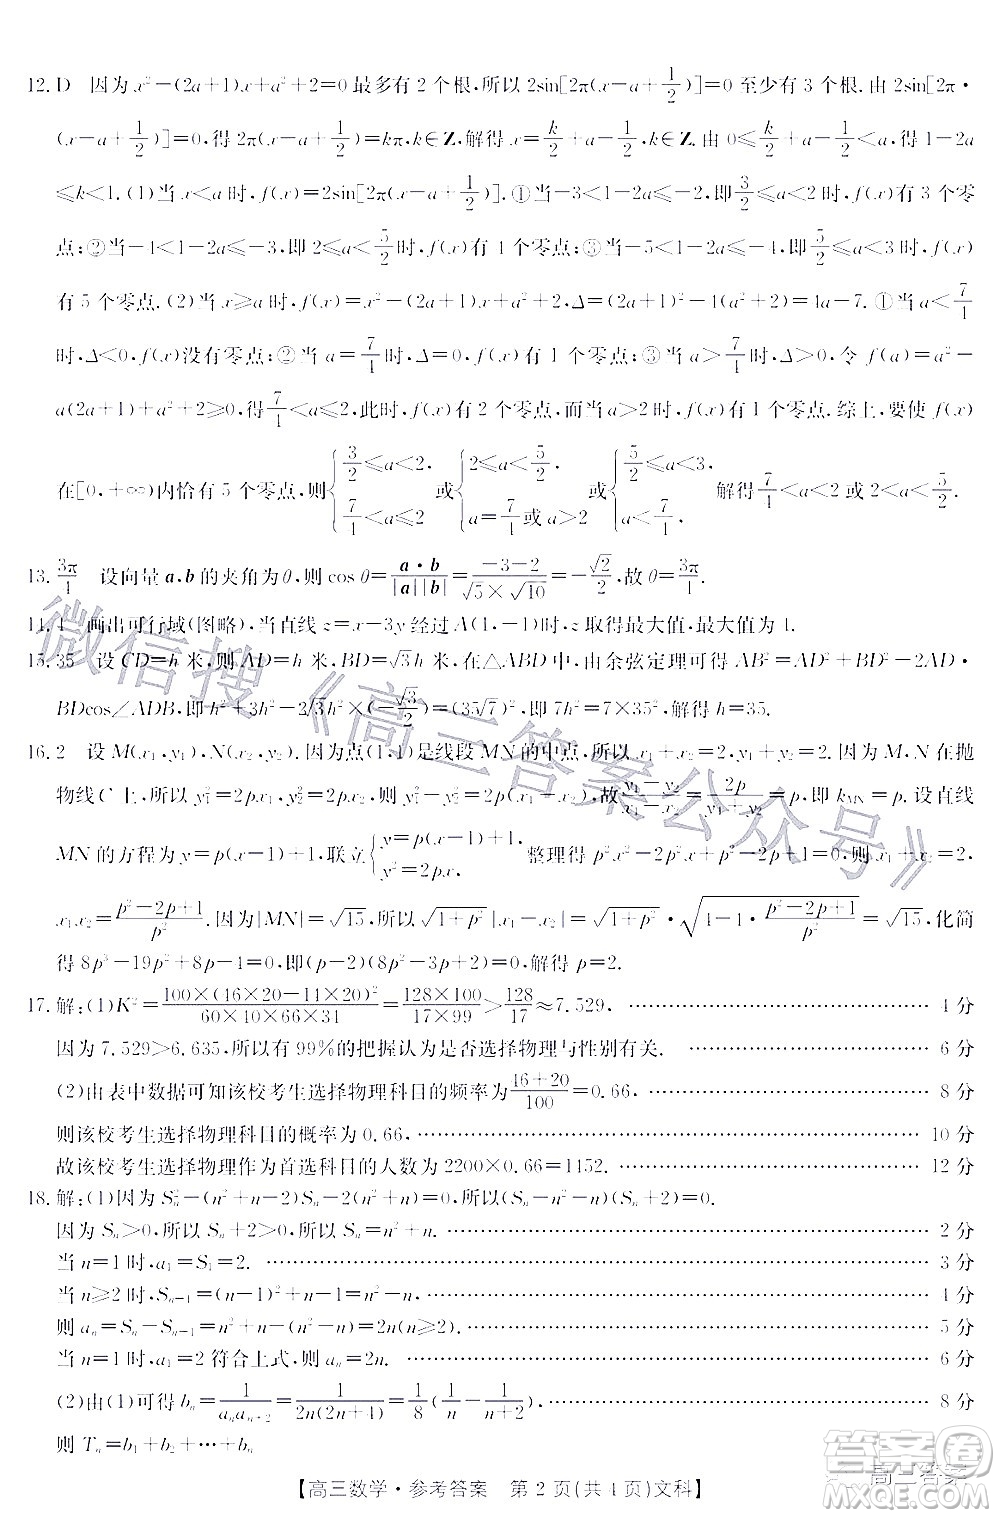 12. D 因为 x²−(2a+1)x+a²+2=0 最多有 2 个根, 所以 2sin[2π(x−a+1/2)]=0 至少有 3 个根. 由 2sin[2π·
(x−a+1/2)]=0, 得 2π(x−a+1/2)=kπ, k∈Z, 解得 x=k/2+a−1/2. 由 0≤k/2+a−1/2<a, 得 1−2a
≤k<1. (1)当 x<a 时, f(x)=2sin[2π(x−a+1/2)]. ①当−3<1−2a≤−2, 即 3/2≤a<2 时, f(x)有 3 个零
点; ②当−4<1−2a≤−3, 即 2≤a<5/2 时, f(x)有 4 个零点; ③当−5<1−2a≤−4, 即 5/2≤a<3 时, f(x)
有 5 个零点. (2)当 x≥a 时, f(x)=x²−(2a+1)x+a²+2, Δ=(2a+1)²−4(a²+2)=4a−7. ①当 a<7/4
时, Δ<0, f(x)没有零点; ②当 a=7/4 时, Δ=0, f(x)有 1 个零点; ③当 a>7/4 时, Δ>0, 令 f(a)=a²−
a(2a+1)+a²+2≥0, 得 7/4<a≤2, 此时, f(x)有 2 个零点, 而当 a>2 时, f(x)有 1 个零点. 综上, 要使 f(x)
在[0,+∞)内恰有 5 个零点, 则{3/2≤a<2, 7/4<a≤2 或{2≤a<5/2, a=7/4 或 a>2 或{5/2≤a<3, a<7/4, 解得 7/4<a<2 或 2<a<5/2.
13. 3π/4 设向量 a,b 的夹角为 θ, 则 cos θ=a·b/|a||b|=−3−2/√5×√10=−√2/2, 故 θ=3π/4.
14. 4 画出可行域(图略), 当直线 z=x−3y 经过 A(1,−1)时, z 取得最大值, 最大值为 4.
15. 35 设 CD=h 米, 则 AD=h 米, BD=√3h 米, 在△ABD 中, 由余弦定理可得 AB²=AD²+BD²−2AD·
BDcos∠ADB, 即 h²+3h²−2√3h²×(−√3/2)=(35√7)², 即 7h²=7×35², 解得 h=35.
16. 2 设 M(x₁,y₁), N(x₂,y₂). 因为点(1,1)是线段 MN 的中点, 所以 x₁+x₂=2, y₁+y₂=2. 因为 M,N 在抛
物线 C 上, 所以 y₁²=2px₁, y₂²=2px₂, 所以 y₁²−y₂²=2p(x₁−x₂), 故 y₁−y₂/x₁−x₂=2p/y₁+y₂=p, 即 kMN=p. 设直线
MN 的方程为 y=p(x−1)+1, 联立{y=p(x−1)+1, y²=2px, 整理得 p²x²−2p²x+p²−2p+1=0, 则 x₁+x₂=2,
x₁x₂=p²−2p+1/p². 因为|MN|=√15, 所以√1+p²|x₁−x₂|=√1+p²·√4−4·p²−2p+1/p²=√15, 化简
得 8p³−19p²+8p−4=0, 即(p−2)(8p²−3p+2)=0, 解得 p=2.
17. 解:(1)K²=100×(46×20−14×20)²/60×40×66×34=128×100/17×99>128/17≈7.529, ………… 4 分
因为 7.529>6.635, 所以有 99%的把握认为是否选择物理与性别有关. ………… 6 分
(2)由表中数据可知该校考生选择物理科目的频率为 46+20/100=0.66, ………… 8 分
则该校考生选择物理科目的概率为 0.66, ………… 10 分
故该校考生选择物理作为首选科目的人数为 2200×0.66=1452. ………… 12 分
18. 解:(1)因为 Sₙ²−(n²+n−2)Sₙ−2(n²+n)=0.
因为 Sₙ>0, 所以 Sₙ+2>0, 所以 Sₙ=n²+n. ………… 2 分
当 n=1 时, a₁=S₁=2. ………… 3 分
当 n≥2 时, Sₙ₋₁=(n−1)²+(n−1)=n²−n, ………… 4 分
则 aₙ=Sₙ−Sₙ₋₁=n²+n−n²+n=2n(n≥2). ………… 5 分
当 n=1 时, a₁=2 符合上式, 故 aₙ=2n. ………… 6 分
(2)由(1)可得 bₙ=1/aₙaₙ₊₂=1/2n(2n+4)=1/8(1/n−1/n+2), ………… 8 分
则 Tₙ=b₁+b₂+…+bₙ
【高三数学·参考答案 第 2 页(共 4 页)文科】
微信搜《高三答案公众号》
答案圈
高三答案